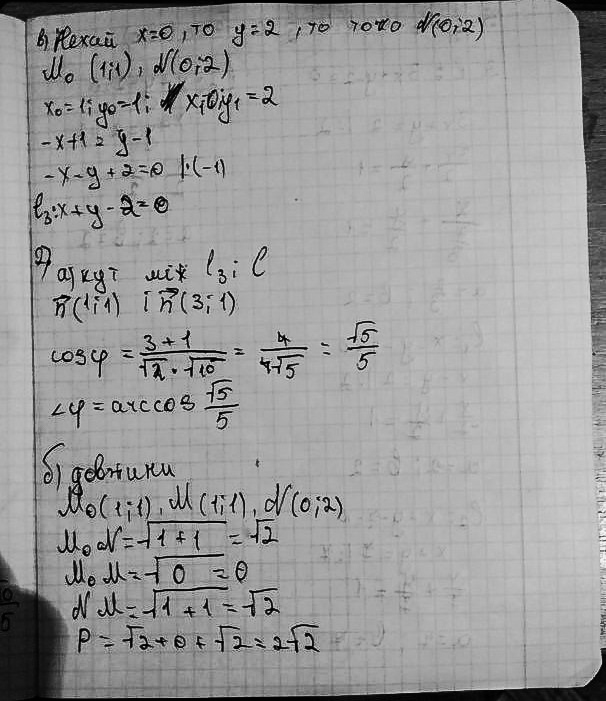 в) Нехай x=0, то y=2, то точка N(0;2)
M₀ (1;1), N(0;2)
x₀=1; y₀=1; x₁0;y₁=2
-x+1=y-1
-x-y+2=0 |·(-1)
l₃:x+y-2=0
2)
а) кут між l₃ і l
n⃗(1;1) і n⃗(3;1)
cosφ = (3+1)/(√2·√10) = 4/(4√5) = √5/5
∠φ=arccos √5/5
б) довжини
M₀(1;1), M(1;1), N(0;2)
M₀N=√(1+1) =√2
M₀M=√0 =0
NM=√(1+1)=√2
P=√2+0+√2=2√2